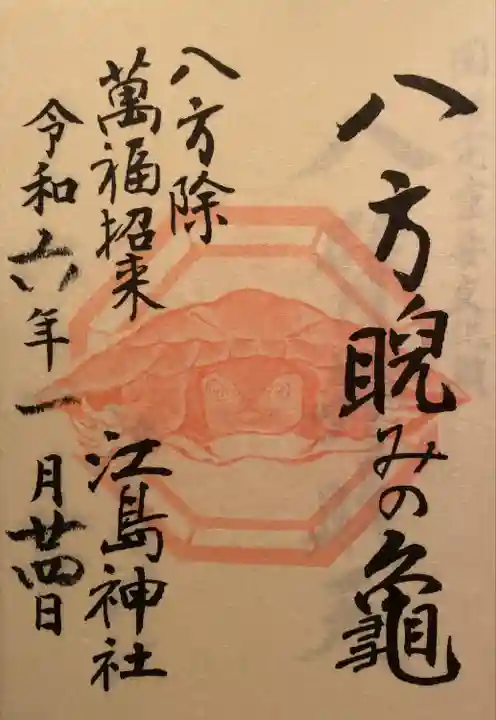 八方睨みの龜
八方除
萬福招来
江島神社
令和六年一月廿四日